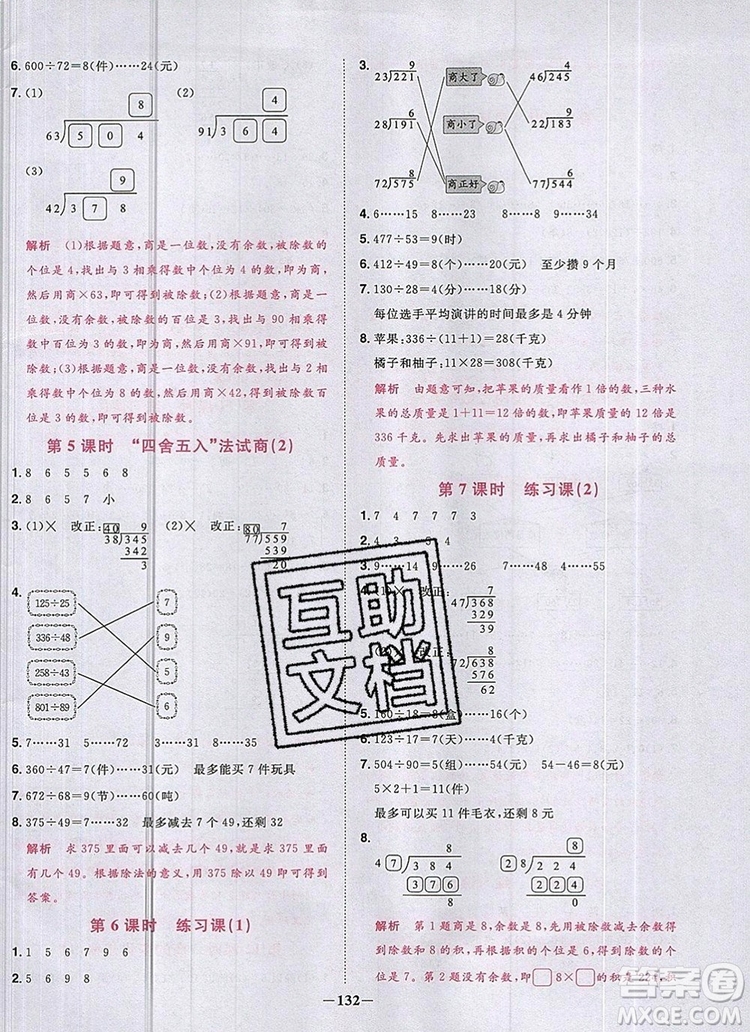 6. 600÷72=8(件)……24(元)
7. (1)
8
63 5 0 4
(2)
4
91 3 6 4
(3)
9
42 3 7 8
解析 (1)根据题意,商是一位数,没有余数,被除数的
个位是4,找出与3相乘得数中个位为4的数,即为商,
然后用商×63,即可得到被除数;(2)根据题意,商是一
位数,没有余数,被除数的百位为3,找出与90相乘得
数中百位为3的数,即为商,然后用商×91,即可得到被
除数;(3)根据题意,商是一位数,没有余数,找出与2
相乘得数中个位为8的数,即为商,然后用商×42,得到
被除数。
第5课时 “四舍五入”法试商(2)
1. 8 6 5 5 6 8
2. 5 6 8 7 小
3. (1)× 改正: 40 9
38 345
342
3
(2)× 改正: 80 7
77 559
539
20
4.
125÷25
336÷48
258÷43
801÷89
7
9
5
6
5. 7……31 5……35 7……31
6. 360÷47=7(件)……31(元) 最多能买7件玩具
7. 672÷68=9(节)……60(吨)
8. 375÷49=7……32 最多减去7个49,还剩32
解析 求375里面有几个49,还剩多少,就是求375里面
有几个49,根据除法的意义,用375除以49即可得到
答案。
第6课时 练习课(1)
1. 1 5 6 7 9 6
2. 5 6 9 8
3.
9
23 221
6
28 191
8
72 575
商大了
商小了
商正好
4
46 245
9
22 183
8
64 576
4. 6……15 8……23 8 9……34
5. 477÷53=9(时)
6. 412÷49=8(个)……20(元) 至少攒9个月
7. 130÷28=4(分)……18(秒)
每位选手平均演讲的时间最多是4分钟
8. 苹果:336÷(11+1)=28(千克)
橘子和柚子:28×11=308(千克)
解析 由题意可知,把苹果的质量看作1倍的数,三种水
果的总质量是1+11=12倍的数,即苹果质量的12倍是
336千克。先求出苹果的质量,再求出橘子和柚子的质
量。
第7课时 练习课(2)
1. 7 4 7 7 7 3
2. 4 3 5 4
3. 9……12 9……27 5……44 6……55
改正: 7
47 368
329
39
改正: 8
72 638
576
62
5. 160÷18=8(盒)……16(个)
6. 123÷17=7(天)……4(千克)
7. 504÷90=5(组)……54(元) 54-46=8(元)
5×2+1=11(件)
最多可以买11件毛衣,还剩8元
8.
8
47 384
376
8
8
28 232
224
8
解析 第1题商是8,余数是8,先用被除数减去余数得
到除数和8的积,再用除数和8的积除以8得到除数的
个位是7。第2题余数是8,即□8×□的积是224,积
互助
文档
答案圈
MXQE.COM
132